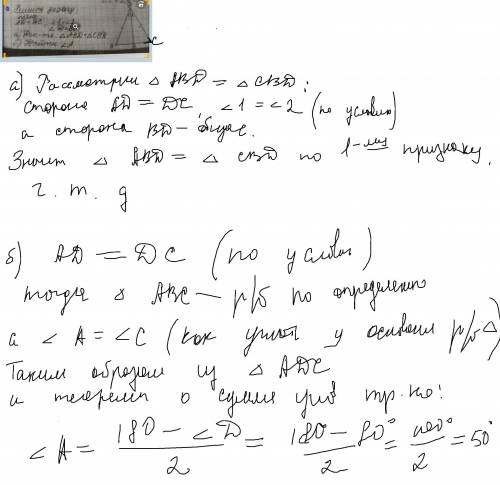 Решите задачу
а) Рассмотрим △ ABD = △ CBD:
сторона AD = DC, ∠1 = ∠2 (по условию)
а сторона BD – общая.
Значит △ ABD = △ CBD по 1-му признаку.
ч. т. д
б) AD = DC (по услов
тогда △ ABC — р/б по определению
а ∠ A = ∠C (как углы у основан р/б △)
Таким образом из △ ADC
и теоремы о сумме угл тр.-ка:
∠A = 180 - ∠D / 2 = 180° - 80° / 2 = 100° / 2 = 50°
C